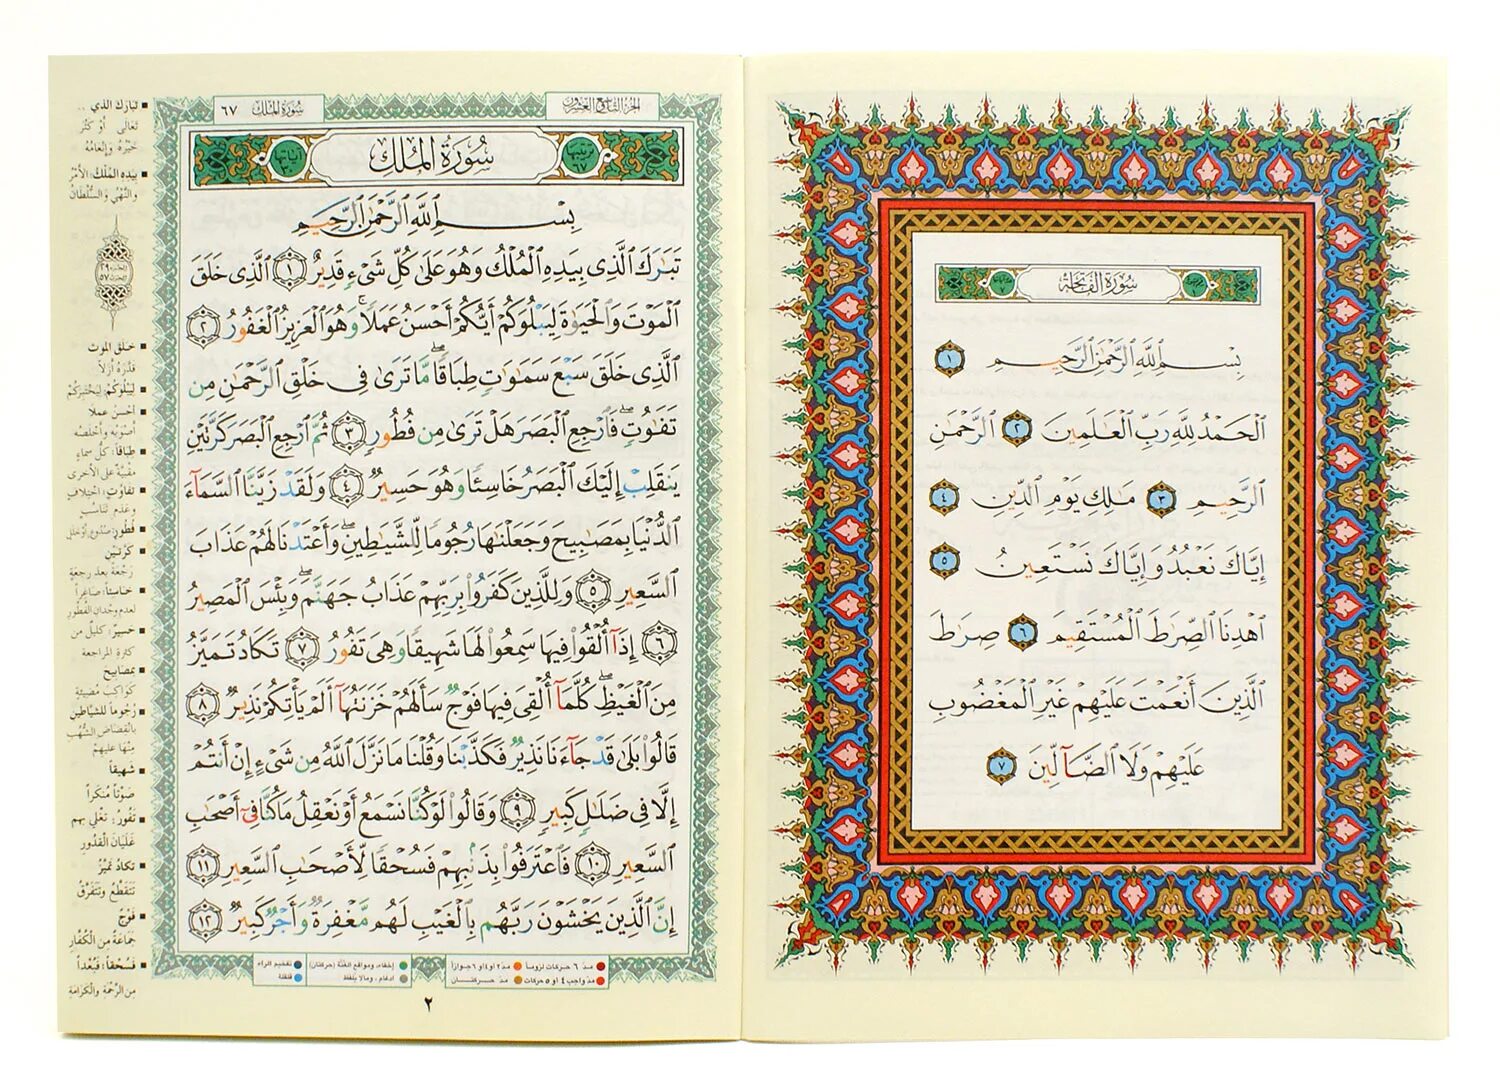 سُورَةُ الْفَاتِحَةِ
بِسْمِ اللَّهِ الرَّحْمَٰنِ الرَّحِيمِ ١
الْحَمْدُ لِلَّهِ رَبِّ الْعَالَمِينَ ٢ الرَّحْمَٰنِ
الرَّحِيمِ ٣ مَالِكِ يَوْمِ الدِّينِ ٤
إِيَّاكَ نَعْبُدُ وَإِيَّاكَ نَسْتَعِينُ ٥
اهْدِنَا الصِّرَاطَ الْمُسْتَقِيمَ ٦ صِرَاطَ
الَّذِينَ أَنْعَمْتَ عَلَيْهِمْ غَيْرِ الْمَغْضُوبِ
عَلَيْهِمْ وَلَا الضَّالِّينَ ٧
الجزء التاسع والعشرون
سورة الملك ٦٧
ترتيبها ٦٧ سُورَةُ الْمُلْكِ آياتها ٣٠
بِسْمِ اللَّهِ الرَّحْمَٰنِ الرَّحِيمِ
تَبَارَكَ الَّذِي بِيَدِهِ الْمُلْكُ وَهُوَ عَلَىٰ كُلِّ شَيْءٍ قَدِيرٌ ١ الَّذِي خَلَقَ
الْمَوْتَ وَالْحَيَاةَ لِيَبْلُوَكُمْ أَيُّكُمْ أَحْسَنُ عَمَلًا ۚ وَهُوَ الْعَزِيزُ الْغَفُورُ ٢
الَّذِي خَلَقَ سَبْعَ سَمَاوَاتٍ طِبَاقًا ۖ مَّا تَرَىٰ فِي خَلْقِ الرَّحْمَٰنِ مِن
تَفَاوُتٍ ۖ فَارْجِعِ الْبَصَرَ هَلْ تَرَىٰ مِن فُطُورٍ ٣ ثُمَّ ارْجِعِ الْبَصَرَ كَرَّتَيْنِ
يَنقَلِبْ إِلَيْكَ الْبَصَرُ خَاسِئًا وَهُوَ حَسِيرٌ ٤ وَلَقَدْ زَيَّنَّا السَّمَاءَ
الدُّنْيَا بِمَصَابِيحَ وَجَعَلْنَاهَا رُجُومًا لِّلشَّيَاطِينِ ۖ وَأَعْتَدْنَا لَهُمْ عَذَابَ
السَّعِيرِ ٥ وَلِلَّذِينَ كَفَرُوا بِرَبِّهِمْ عَذَابُ جَهَنَّمَ ۖ وَبِئْسَ الْمَصِيرُ
٦ إِذَا أُلْقُوا فِيهَا سَمِعُوا لَهَا شَهِيقًا وَهِيَ تَفُورُ ٧ تَكَادُ تَمَيَّزُ
مِنَ الْغَيْظِ ۖ كُلَّمَا أُلْقِيَ فِيهَا فَوْجٌ سَأَلَهُمْ خَزَنَتُهَا أَلَمْ يَأْتِكُمْ نَذِيرٌ ٨
قَالُوا بَلَىٰ قَدْ جَاءَنَا نَذِيرٌ فَكَذَّبْنَا وَقُلْنَا مَا نَزَّلَ اللَّهُ مِن شَيْءٍ إِنْ أَنتُمْ
إِلَّا فِي ضَلَالٍ كَبِيرٍ ٩ وَقَالُوا لَوْ كُنَّا نَسْمَعُ أَوْ نَعْقِلُ مَا كُنَّا فِي أَصْحَابِ
السَّعِيرِ ١٠ فَاعْتَرَفُوا بِذَنبِهِمْ فَسُحْقًا لِّأَصْحَابِ السَّعِيرِ ١١
إِنَّ الَّذِينَ يَخْشَوْنَ رَبَّهُم بِالْغَيْبِ لَهُم مَّغْفِرَةٌ وَأَجْرٌ كَبِيرٌ ١٢
■ تبارك الذي ..
تعالى أو كثر
خيره وإنعامه
■ بيده الملك: الأمر
والنهي والسلطان
■ خلق الموت
قدّره أزلاً
■ ليبلوكم: ليختبركم
■ أحسن عملا
أصوبه وأخلصه
■ طباقا: كل سماء
مقببة على الأخرى
■ تفاوت: اختلاف
وعدم تناسب
■ فطور: صدوع أو خلل
■ كرتين
رجعة بعد رجعة
■ خاسئا: صاغرا
لعدم وجدان الفطور
■ حسير: كليل من
كثرة المراجعة
■ بمصابيح
كواكب مضيئة
■ رجوما للشياطين
بانقضاض الشهب
منها عليهم
■ شهيقا
صوتا منكرا
■ تفور: تغلي بهم
غليان القدور
■ تكاد تميز
تتقطع وتتفرق
■ فوج
جماعة من الكفار
■ فسحقا: فبعدا
من الرحمة والكرامة
مد ٦ حركات لزوماً مد ٢ أو ٤ أو ٦ جوازاً
مد واجب ٤ أو ٥ حركات مد حركتان
إخفاء، ومواقع الغنّة (حركتان) تفخيم الراء
إدغام، ومالا يلفظ قلقلة
٢